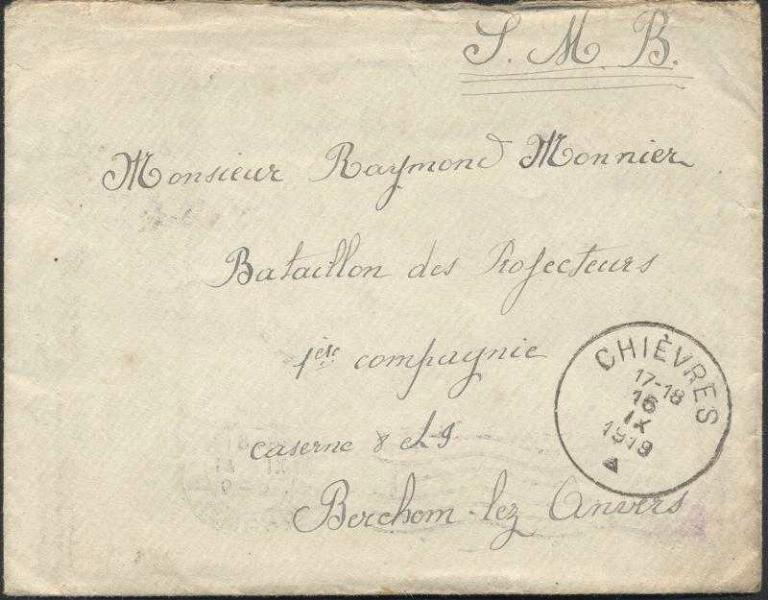 S. M. B.
Monsieur Raymond Monnier
Bataillon des Projecteurs
1ère compagnie
caserne 8 et 9
Berchem-lez Anvers
CHIÈVRES
17-18
16
IX
1919